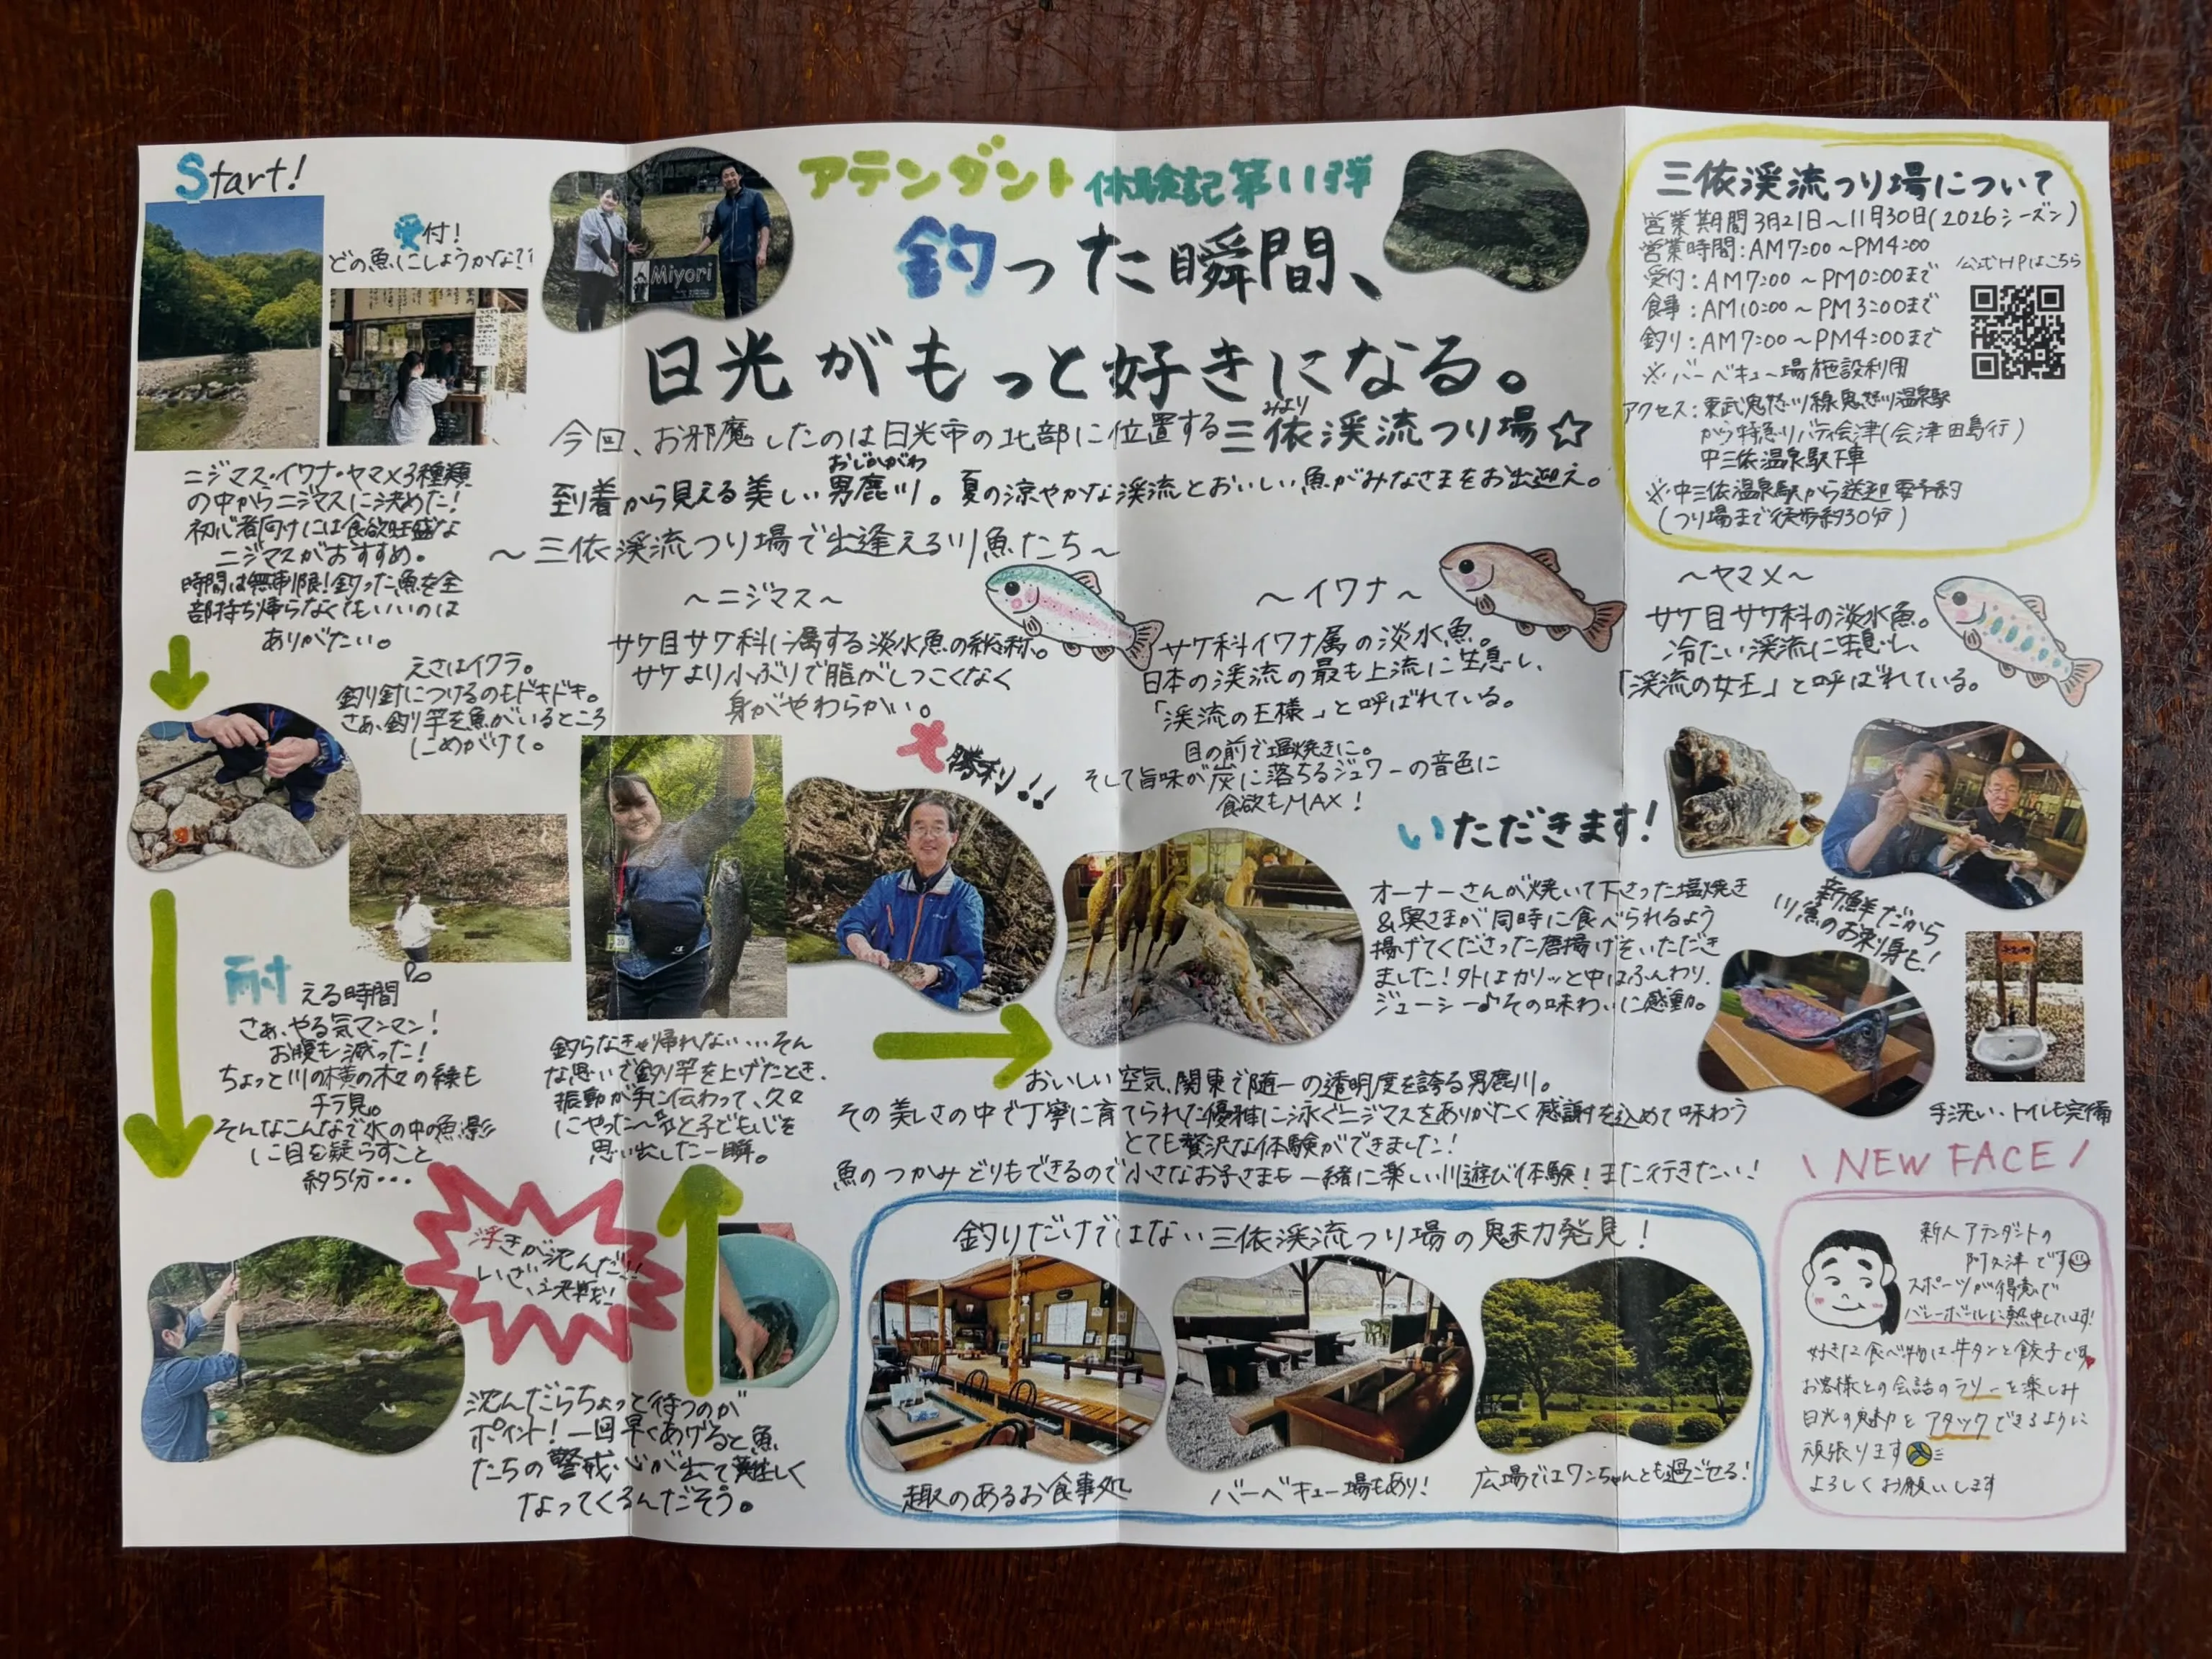 アテンダント体験記第11弾
釣った瞬間、
日光がもっと好きになる。
Miyori
今回、お邪魔したのは日光市の北部に位置する三依渓流つり場☆
みより
到着から見える美しい男鹿川。夏の涼やかな渓流とおいしい魚がみなさまをお出迎え。
おじかがわ
Start!
受付!
どの魚にしようかな?!
ニジマス・イワナ・ヤマメ3種類
の中からニジマスに決めた!
初心者向けには食欲旺盛な
ニジマスがおすすめ。
時間は無制限!釣った魚を全
部持ち帰らなくてもいいのは
ありがたい。
えさはイクラ。
釣り針につけるのもドキドキ。
さぁ、釣り竿を魚がいるところ
にめがけて。
耐える時間
さぁ、やる気マンマン!
お腹も減った!
ちょっと川の横の木々の緑も
チラ見。
そんなこんなで水の中の魚影
に目を疑らすこと
約5分・・・
浮きが沈んだ!!
いざ、決戦!
沈んだらちょっと待つのが
ポイント!一回早くあげると魚
たちの警戒心が出て難しく
なってくるんだそう。
釣らなきゃ帰れない・・・そん
な思いで釣り竿を上げたとき、
振動が手に伝わって、久々
にやった〜!と子ども心を
思い出した一瞬。
大勝利!!
〜三依渓流つり場で出逢える川魚たち〜
〜ニジマス〜
サケ目サケ科に属する淡水魚の総称。
サケより小ぶりで脂がしつこくなく
身がやわらかい。
〜イワナ〜
サケ科イワナ属の淡水魚。
日本の渓流の最も上流に生息し、
「渓流の王様」と呼ばれている。
〜ヤマメ〜
サケ目サケ科の淡水魚。
冷たい渓流に生息し、
「渓流の女王」と呼ばれている。
目の前で塩焼きに。
そして旨味が炭に落ちるジュワーの音色に
食欲もMAX!
いただきます!
オーナーさんが焼いて下さった塩焼き
&奥さまが同時に食べられるよう
揚げてくださった唐揚げをいただき
ました!外はカリッと中はふんわり、
ジューシー♪その味わいに感動。
新鮮だから
川魚のお刺身も!
手洗い、トイレも完備
おいしい空気、関東で随一の透明度を誇る男鹿川。
その美しさの中で丁寧に育てられた優雅に泳ぐニジマスをありがたく感謝を込めて味わう
とても贅沢な体験ができました!
魚のつかみどりもできるので小さなお子さまも一緒に楽しい川遊び体験!また行きたい!
釣りだけではない三依渓流つり場の魅力発見!
趣のあるお食事処
バーベキュー場もあり!
広場ではワンちゃんとも過ごせる!
三依渓流つり場について
営業期間3月21日〜11月30日(2026シーズン)
営業時間:AM7:00〜PM4:00
受付:AM7:00〜PM0:00まで
食事:AM10:00〜PM3:00まで
釣り:AM7:00〜PM4:00まで
公式HPはこちら
※バーベキュー場施設利用
アクセス:東武鬼怒川線鬼怒川温泉駅
から特急リバティ会津(会津田島行)
中三依温泉駅下車
※中三依温泉駅から送迎要予約
(つり場まで徒歩約30分)
\NEW FACE/
新人アテンダントの
阿久津です
スポーツが得意で
バレーボールに熱中しています!
好きな食べ物は牛タンと餃子です
お客様との会話のラリーを楽しみ
日光の魅力をアタックできるように
頑張ります
よろしくお願いします